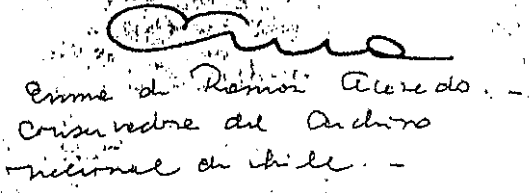 Emma
Emma de Ramón Acevedo. -
Conservadora del Archivo
Nacional de Chile. -